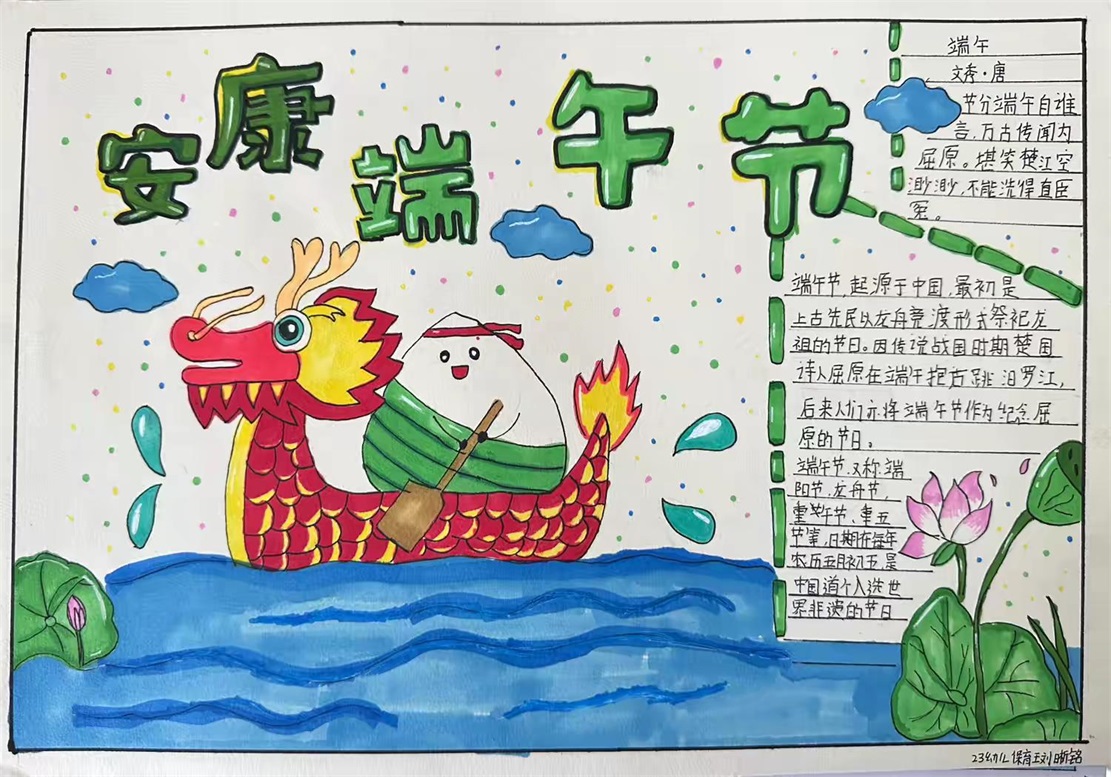 安康端午节
端午
文秀·唐
节分端午自谁
言,万古传闻为
屈原。堪笑楚江空
渺渺,不能洗得直臣
冤。
端午节,起源于中国,最初是
上古先民以龙舟竞渡形式祭祀龙
祖的节日。因传说战国时期楚国
诗人屈原在端午抱石跳汨罗江,
后来人们亦将端午节作为纪念屈
原的节日。
端午节,又称端
阳节,龙舟节,
重午节、重五
节等,日期在每年
农历五月初五,是
中国首个入选世
界非遗的节日
23幼儿保育 刘昕铭